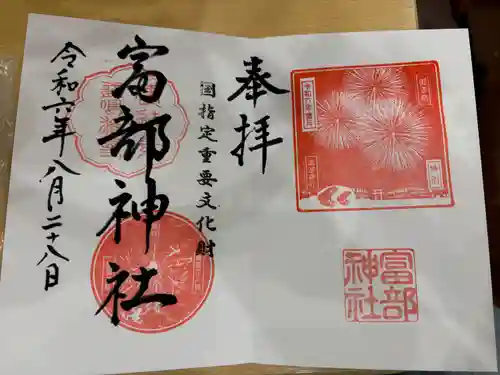 奉拝
国指定重要文化財
富部神社
令和六年八月二十八日
富部
神社